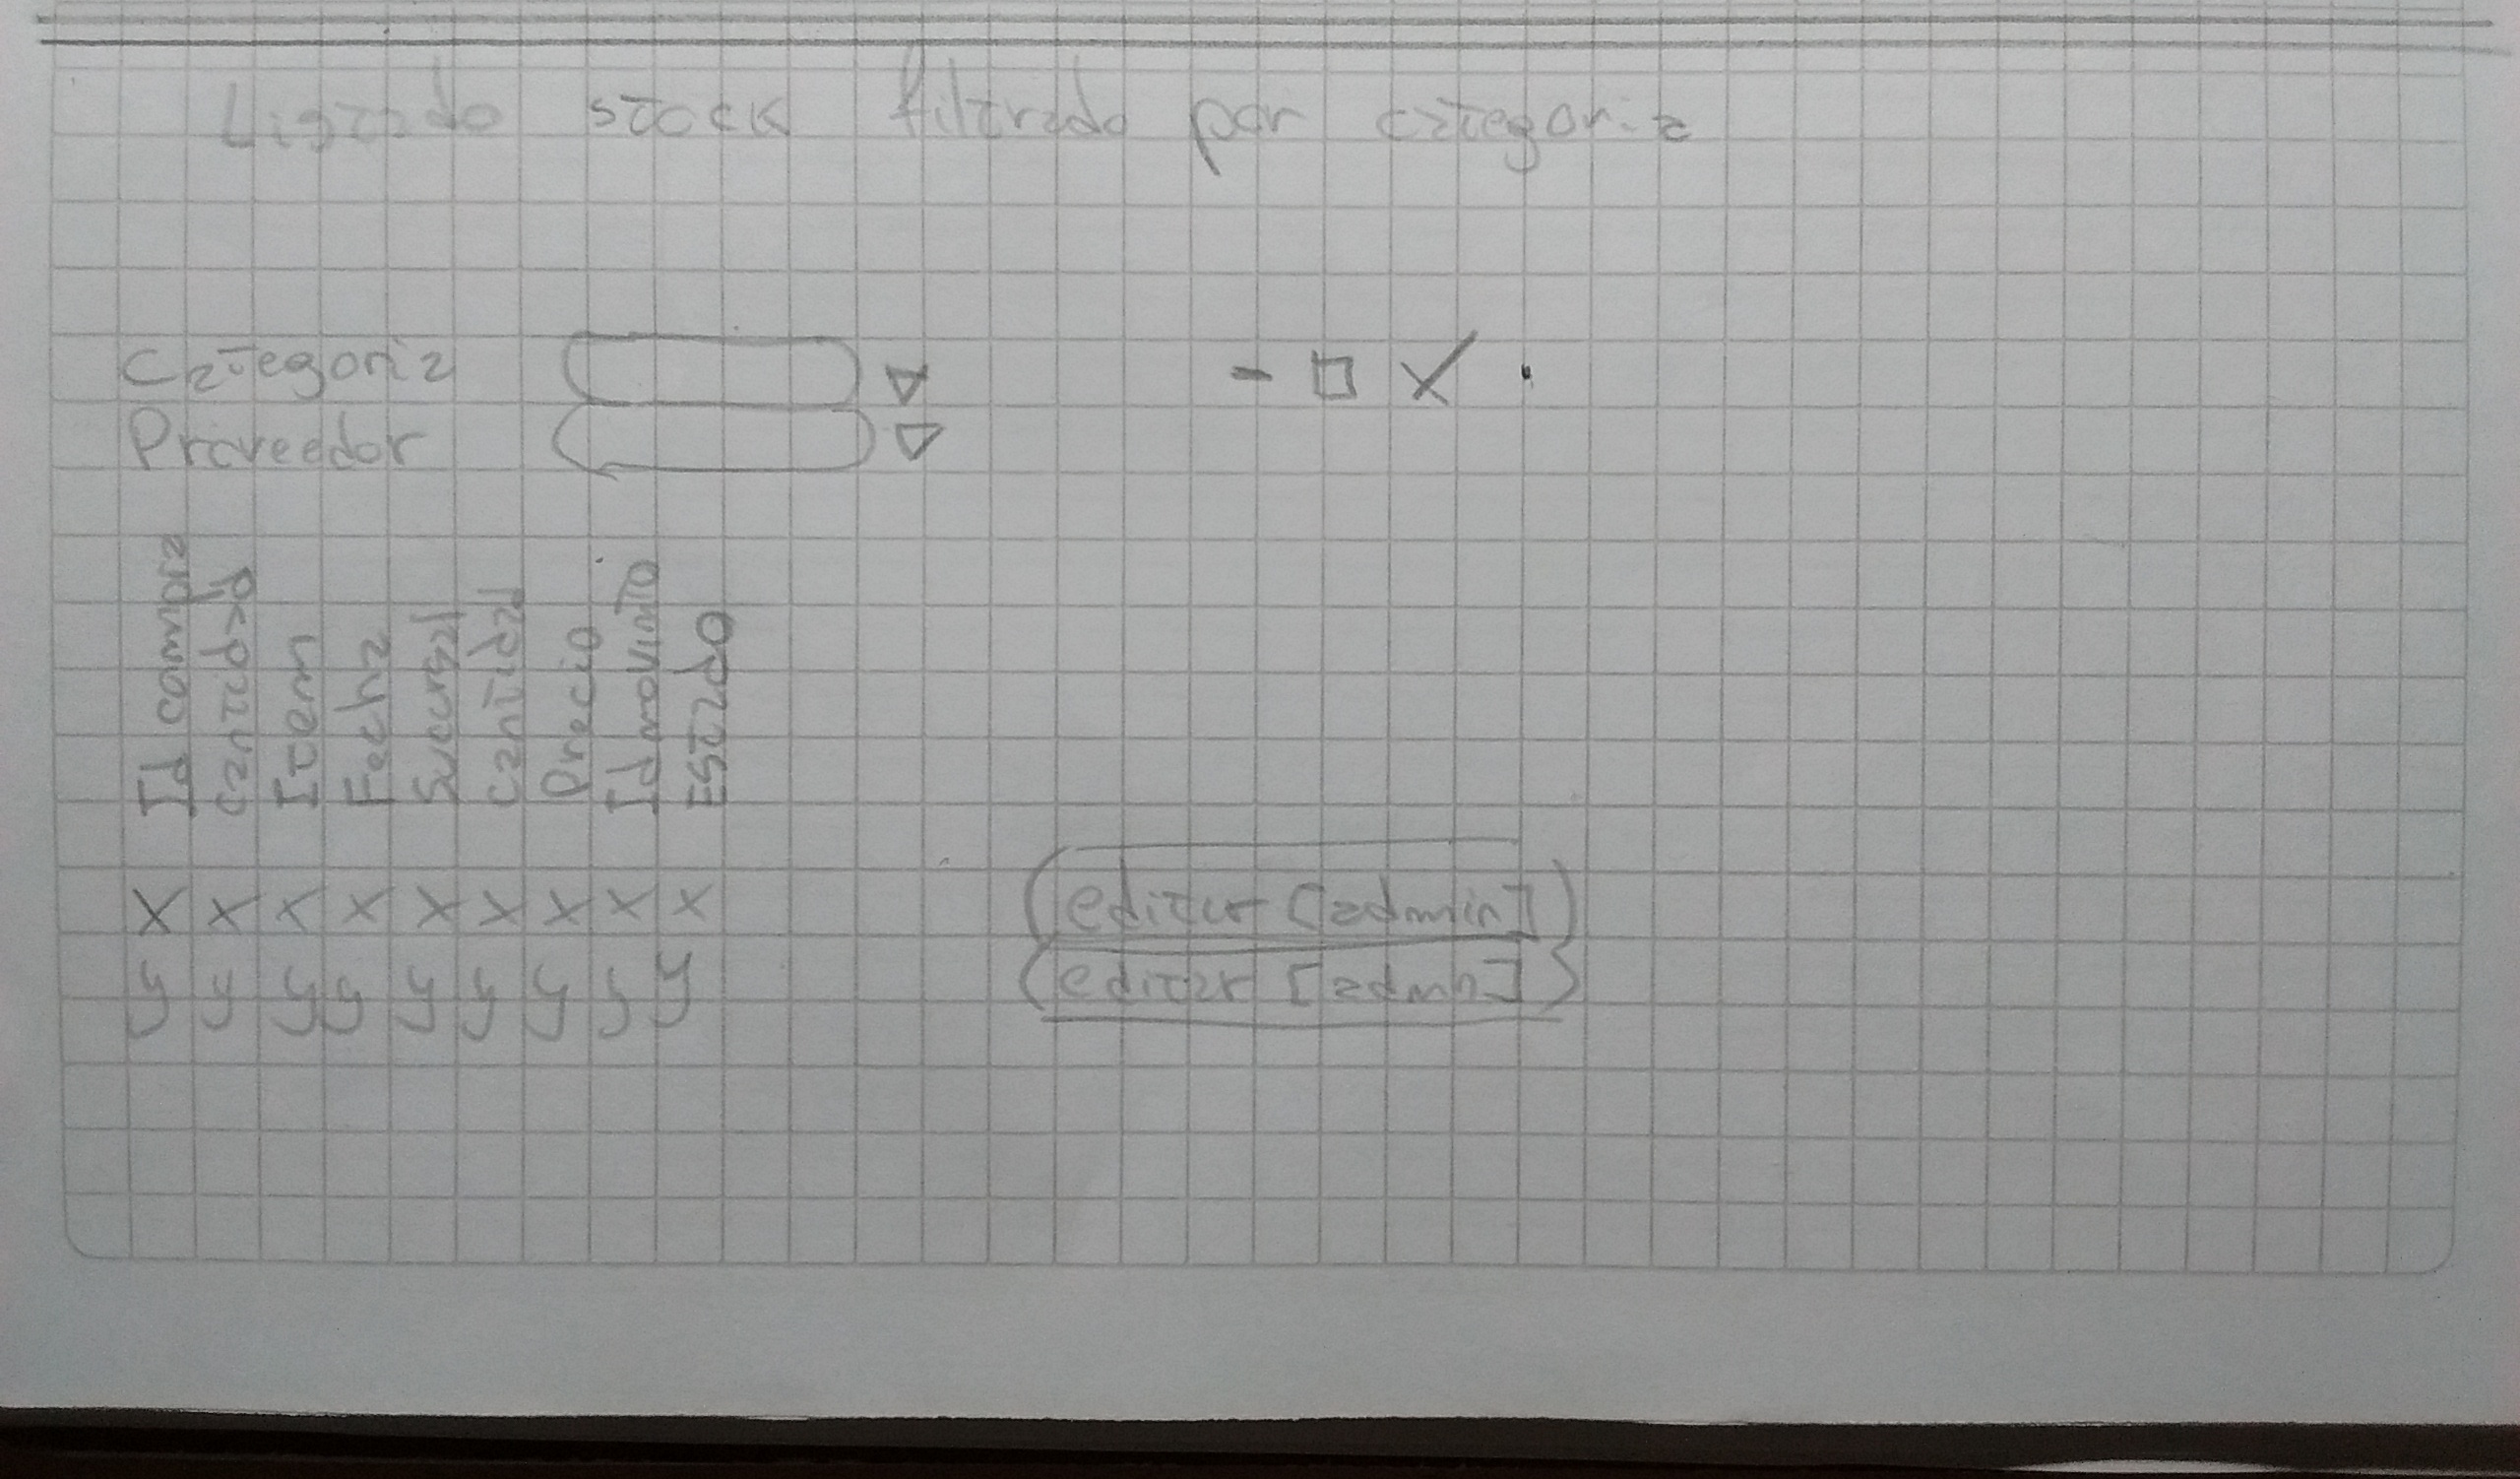 Listado stock filtrado por categoria
Categoria
Proveedor
Id compra
Cantidad
Item
Fecha
Sucursal
Cantidad
Precio
Id movimto
Estado
X X X X X X X X X
y y y y y y y y y
editar [admin]
editar [admn]